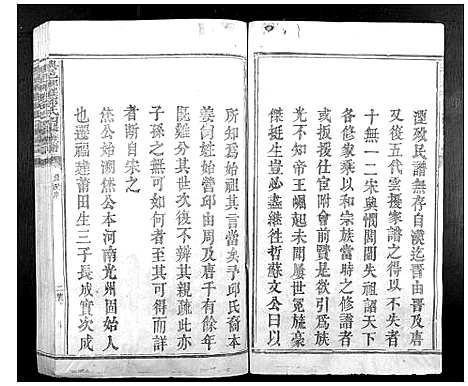 湮致民譜無存自漢迄晋由晋及唐
火復五代雲擾家譜之得以不失者
十無一二宋與憫閥閱失祖詔天下
各修家乘以和宗族當時之修譜者
或不原其本王帝崛起未聞屢世冕旒豪
傑挺生豈必盡繼徃哲蘇文公曰以
所知為始祖其言當矣予邱氏裔本
姜尚姓始營邱由周及唐千有餘年
既難分其世次後不辨其親疏此亦
子孫之無可如何者至其可得而詳
者断自宋之
焦公始溯焦公本河南光州固始人
也遷福建莆田生三子長成實次成